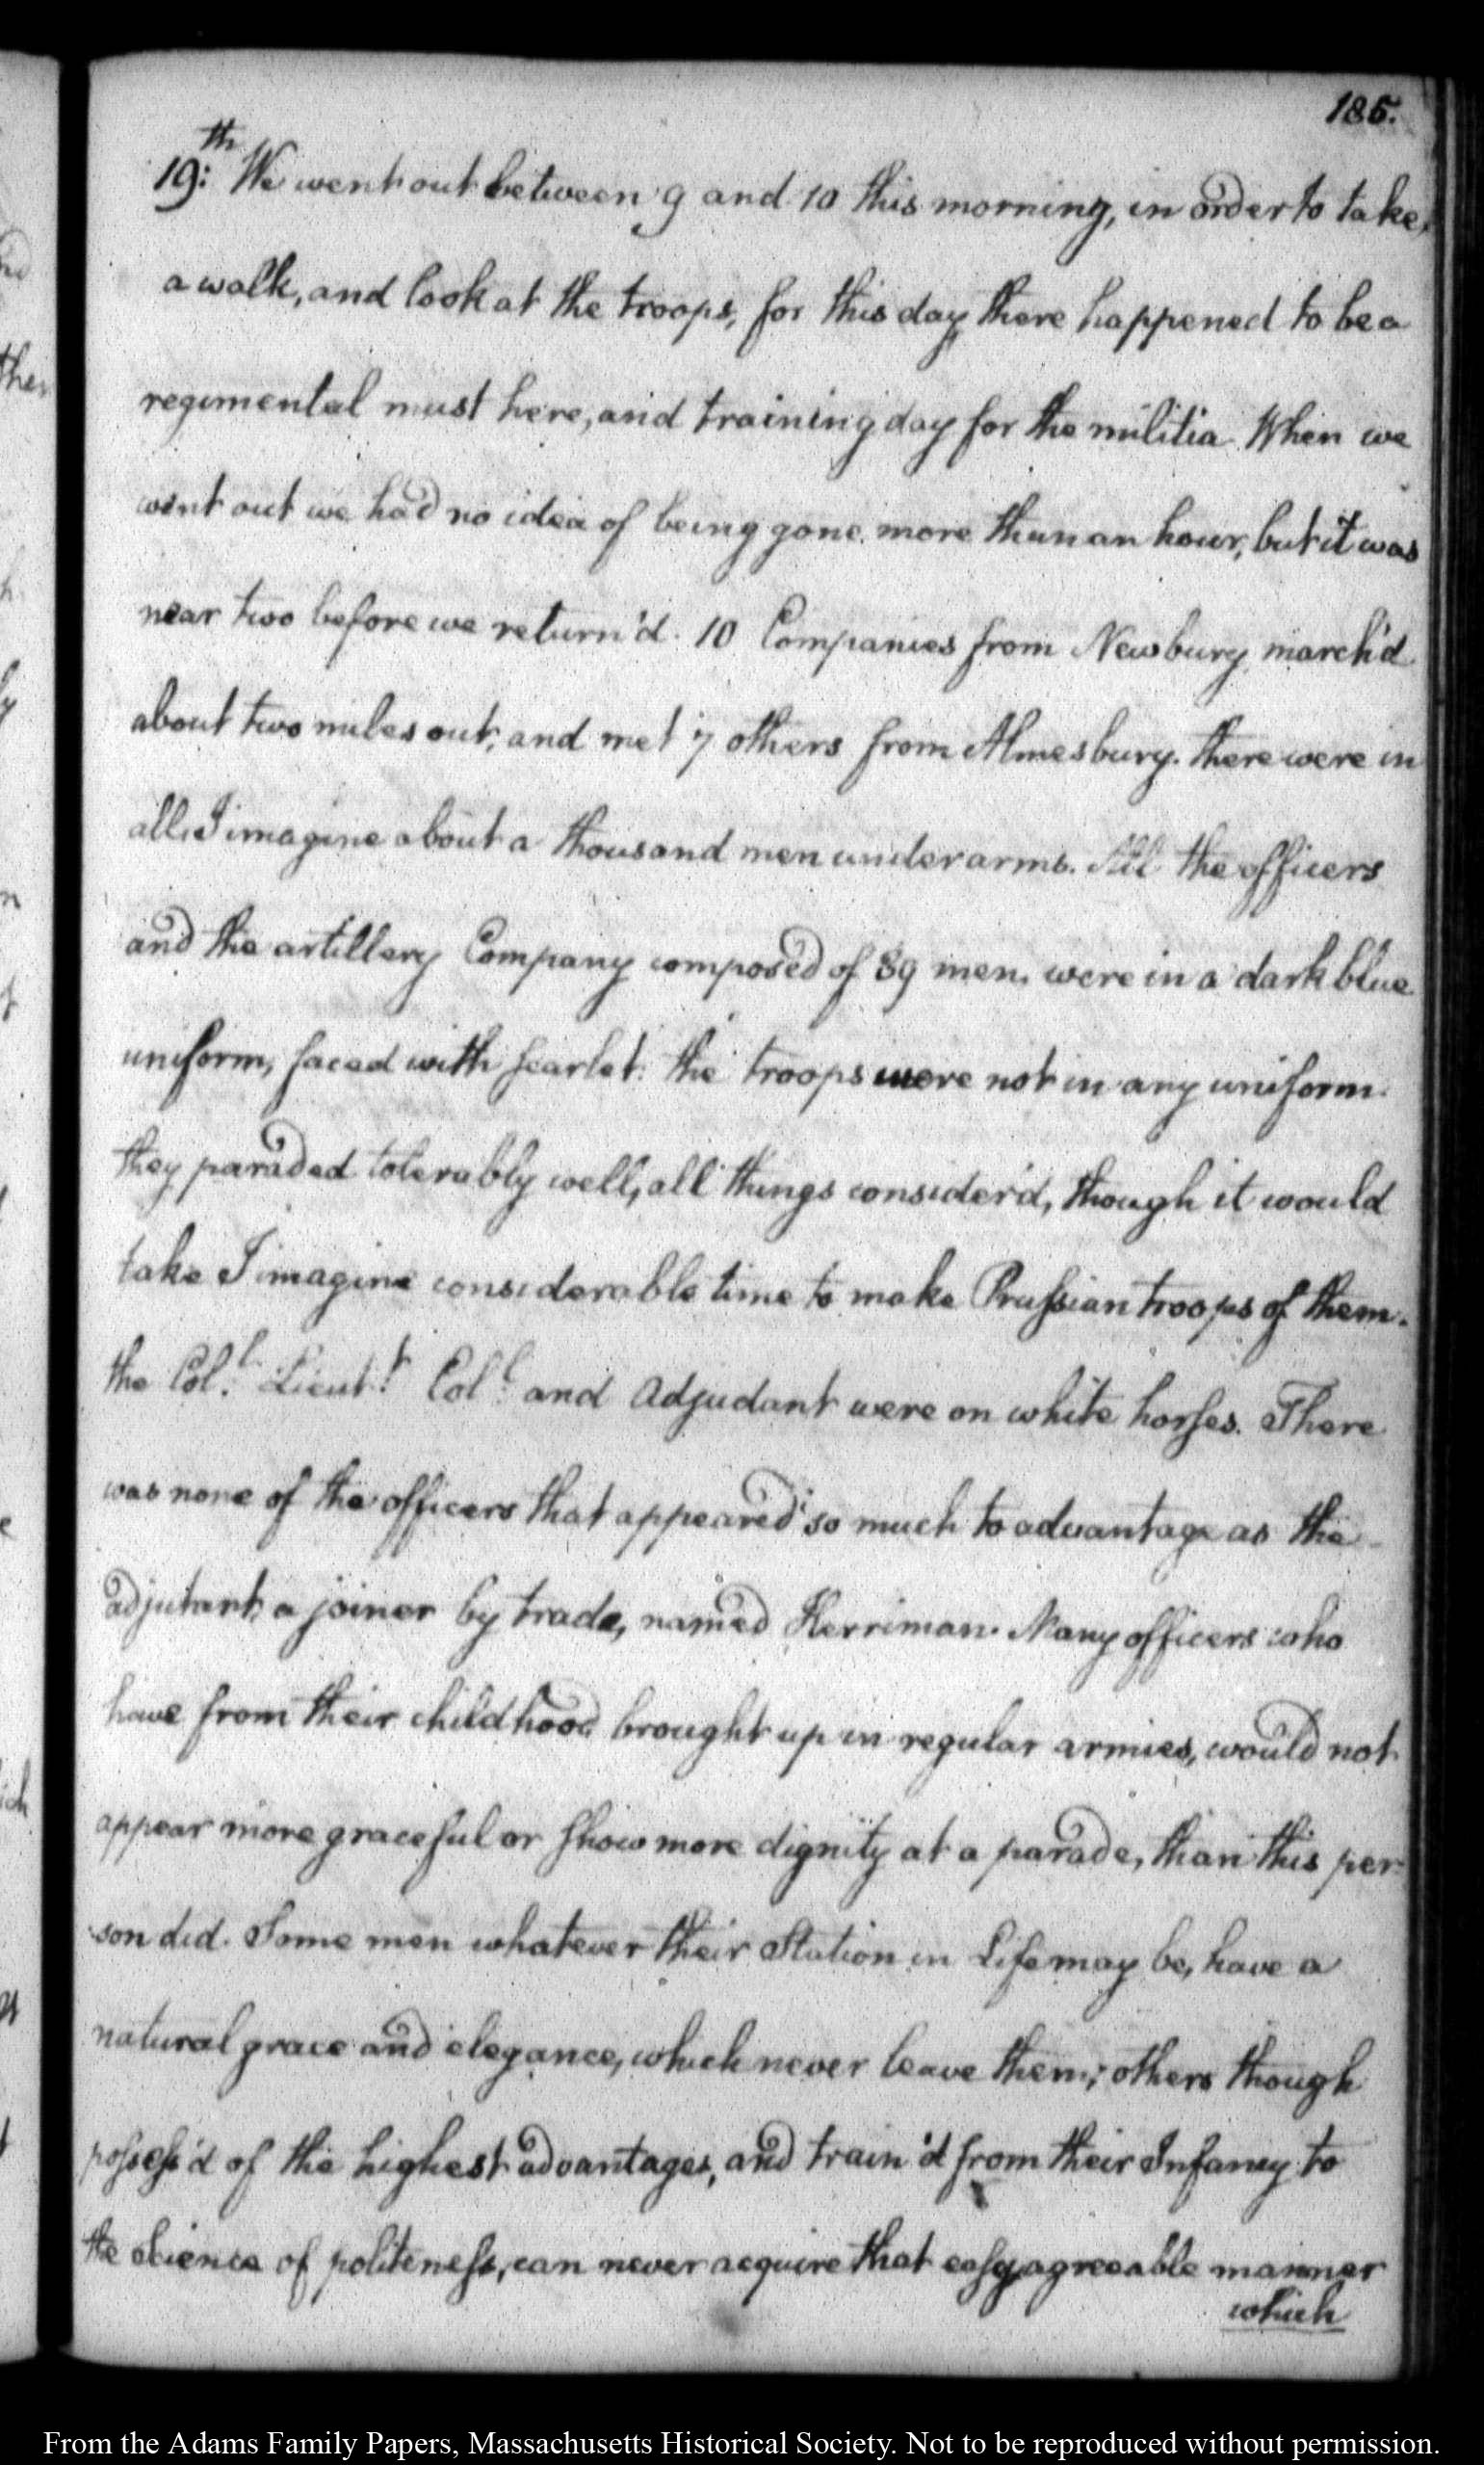 185.
19:th We went out between 9 and 10 this morning, in order to take,
a walk, and look at the troops, for this day there happened to be a
regimental must here, and training day for the militia. When we
went out we had no idea of being gone more than an hour, but it was
near two before we return'd. 10 Companies from Newbury march'd
about two miles out, and met 7 others from Almesbury. there were in
all I imagine about a thousand men under arms. All the officers
and the artillery Company composed of 39 men, were in a dark blue
uniform, faced with scarlet: the troops were not in any uniform.
they paraded tolerably well, all things consider'd, though it would
take I imagine considerable time to make Prussian troops of them.
the Col.l Lieut.t Col.l and Adjudant were on white horses. There
was none of the officers that appeared so much to advantage as the
adjutant, a joiner by trade, named Herriman. Many officers who
have from their childhood brought up in regular armies, would not
appear more graceful or show more dignity at a parade, than this per-
son did. Some men whatever their Station in Life may be, have a
natural grace and elegance, which never leave them; others though
possess'd of the highest advantages, and train'd from their Infancy to
the science of politeness, can never acquire that easy agreeable manner
which
From the Adams Family Papers, Massachusetts Historical Society. Not to be reproduced without permission.